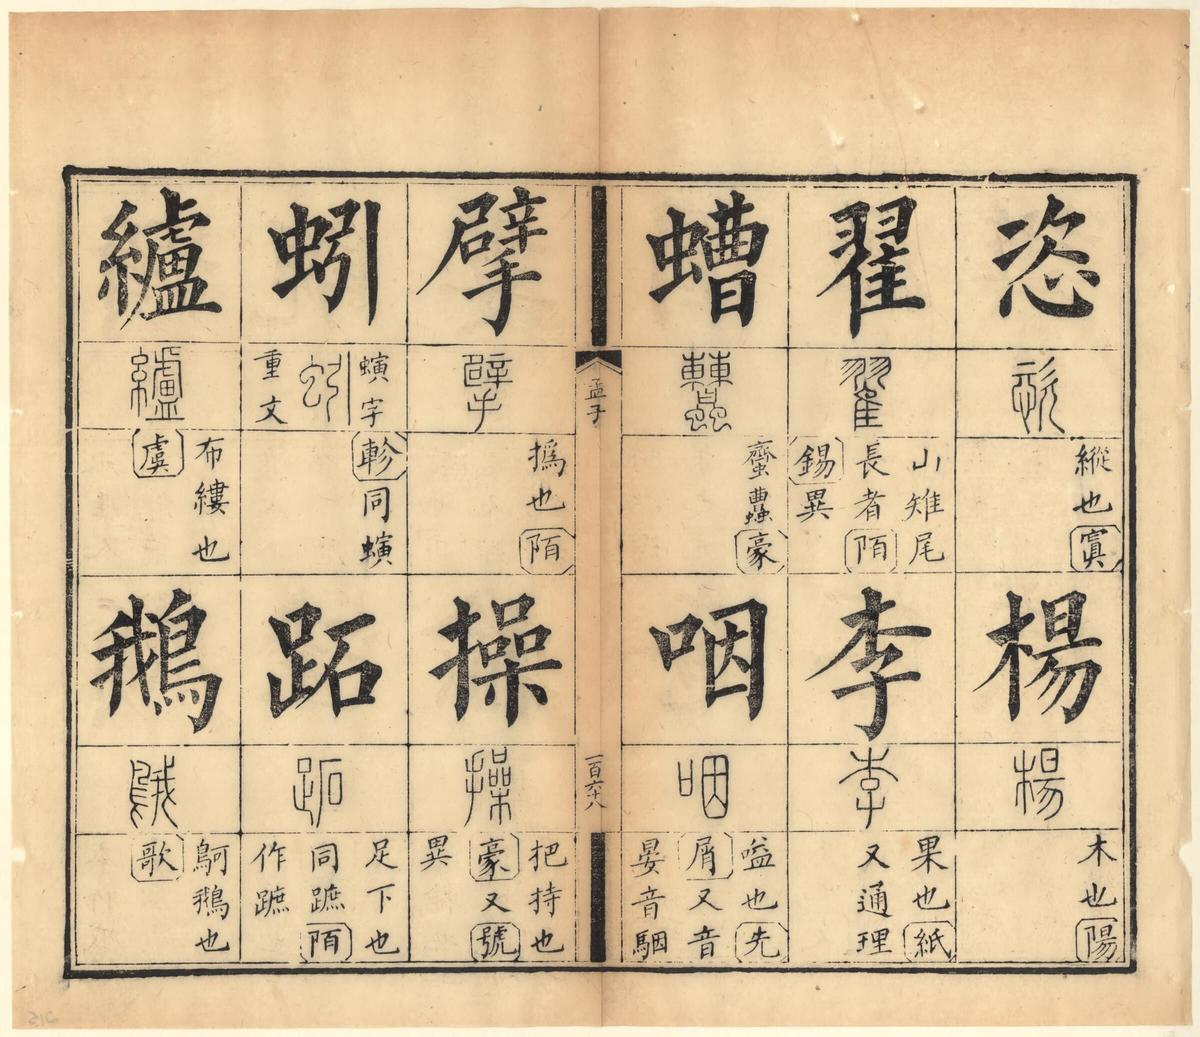 恣
恣
縱也寘
楊
楊
木也陽
翟
翟
山雉尾
長者陌
錫異
李
李
果也紙
又通理
螬
螬
蠐螬豪
咽
咽
嗌也先
屑又音
晏音駰
孟子
一百六十八
擘
擘
撝也陌
操
操
把持也
豪又號
異
蚓
螾字
蚓
重文
軫同螾
跖
跖
足下也
同蹠陌
作蹠
纑
纑
布縷也
虞
鵝
鵝
鴚鵝也
歌